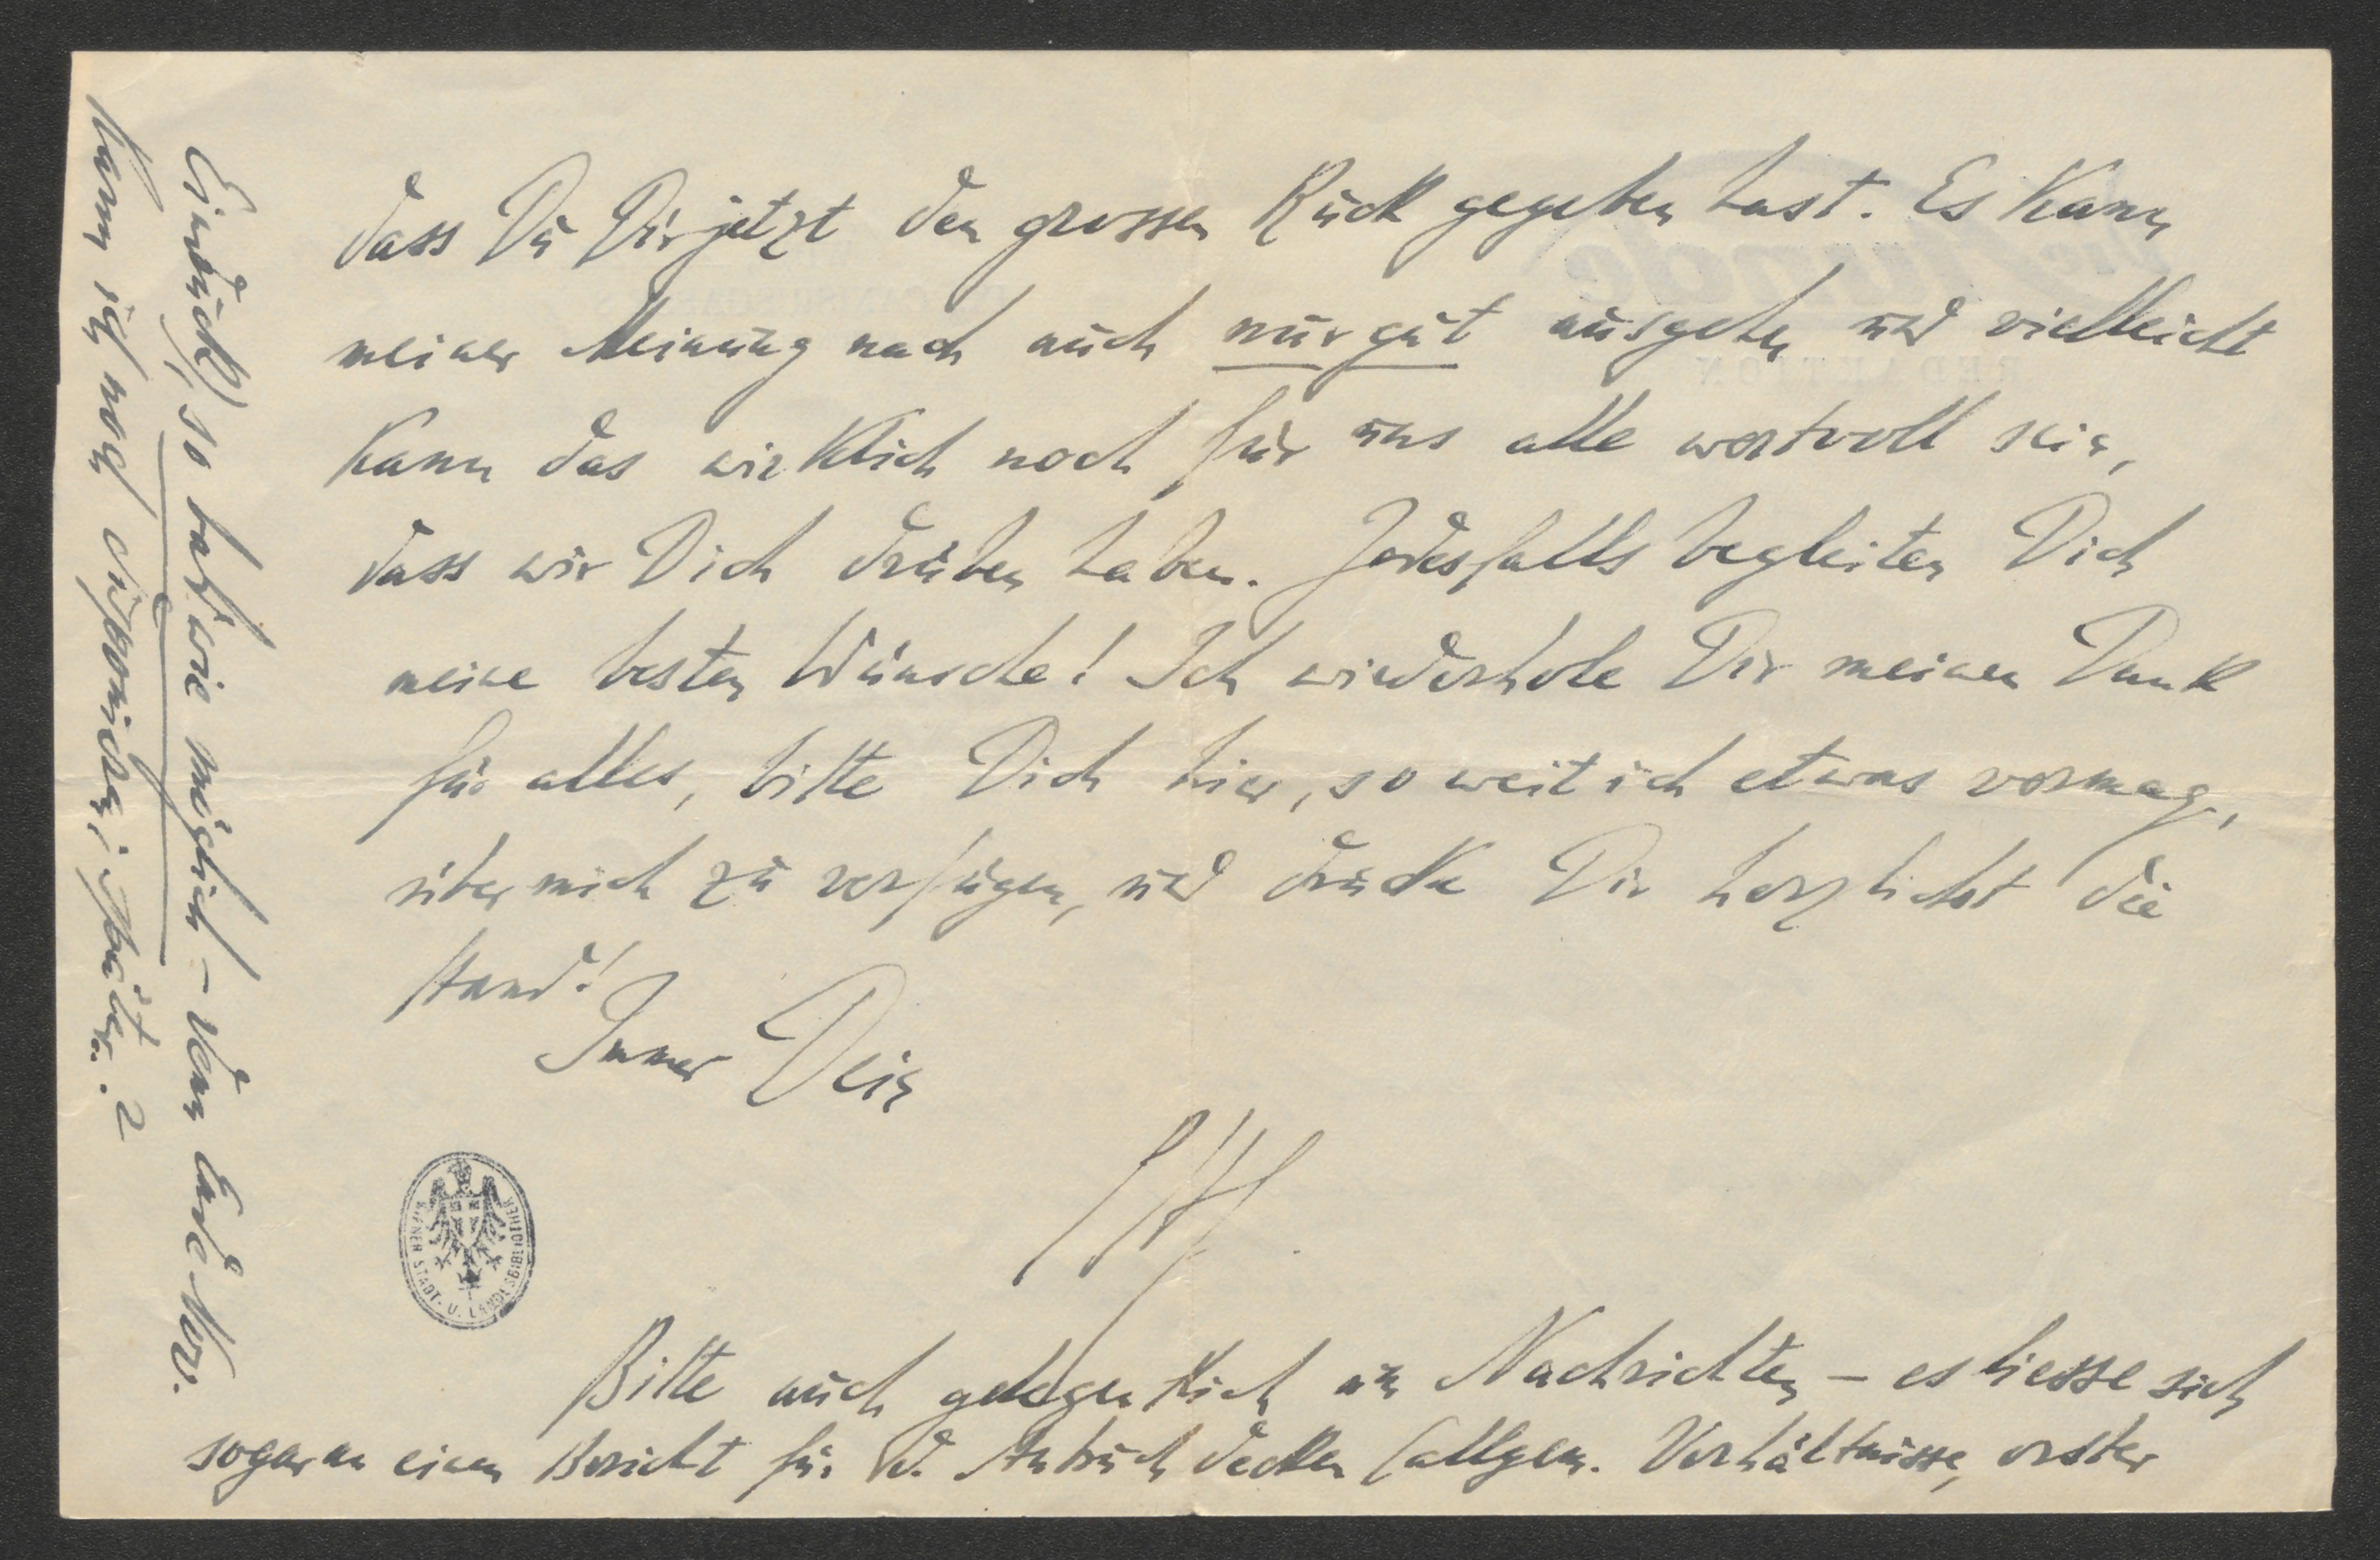 dass Du Dir jetzt den grossen Ruck gegeben hast. Es kann
meiner Meinung nach auch nur gut ausgehen und vielleicht
kann das wirklich noch für uns alle wertvoll sein,
dass wir Dich drüben haben. Jedesfalls begleiten Dich
meine besten Wünsche! Ich wiederhole Dir meinen Dank
für alles, bitte Dich hier, so weit ich etwas vermag,
über mich zu verfügen, und drücke Dir herzlichst die
Hand!
Immer Dein
Bitte auch gelegentlich um Nachrichten – es liesse sich
sogar an einen Bericht für d. Anbruch denken (allgem. Verhältnisse, erster
Eindruck) so bald wie möglich – denn Ende Nov.
kann ich noch disponieren; später?
WIENER STADT- U. LANDESBIBLIOTHEK
REDAKTION